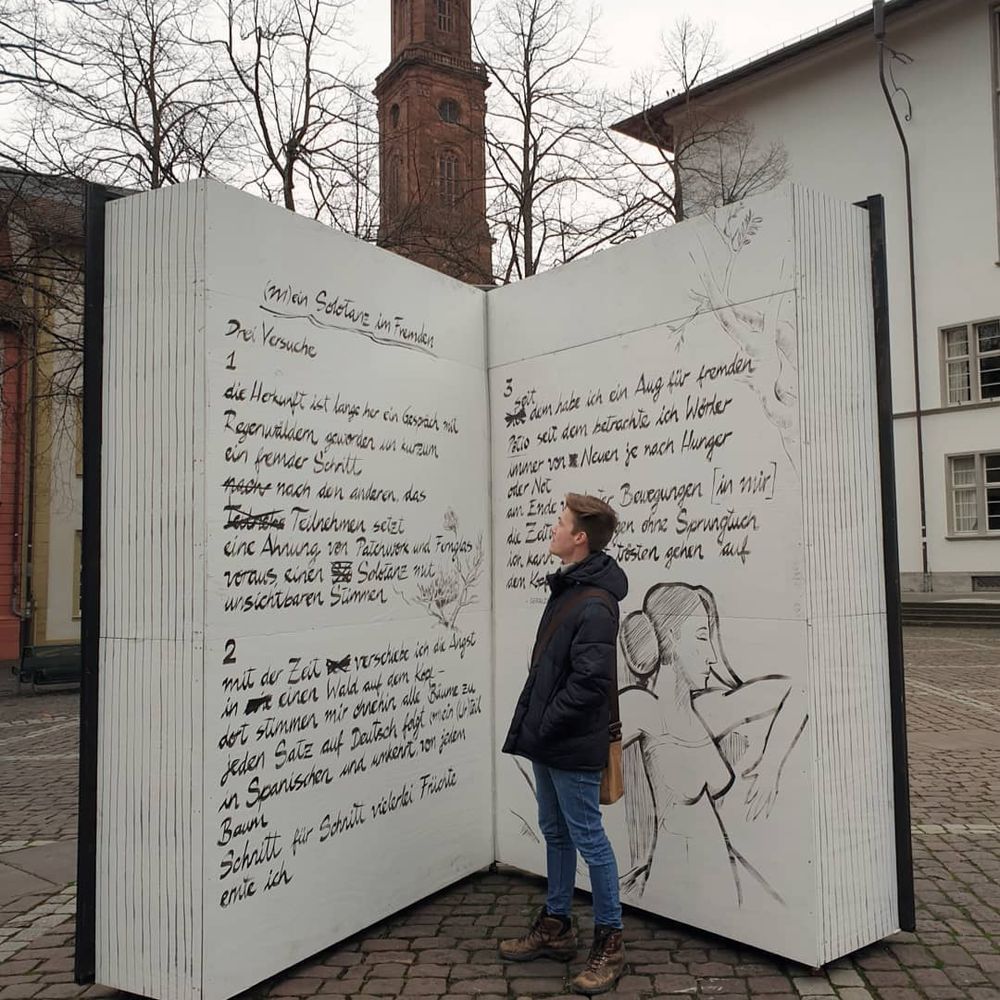 (m)ein Solotanz im Fremden
Drei Versuche
1
die Herkunft ist lange her ein Gespräch mit
Regenwäldern geworden in kurzum
ein fremder Schritt
nach nach dem anderen, das
Teilnehmen setzt
eine Ahnung von Patchwork und Fernglas
voraus, einen Solotanz mit
unsichtbaren Stimmen
2
mit der Zeit verschiebe ich die Angst
in einen Wald auf dem Kopf –
dort stimmen mir ohnehin alle Bäume zu
jeden Satz auf Deutsch folgt (m)ein (Ur)teil
in Spanischen und umkehrt, von jedem
Baum
Schritt für Schritt vielerlei Früchte
ernte ich
3
seit
dem habe ich ein Aug für fremden
Patio seit dem betrachte ich Wörter
immer von Neuen je nach Hunger
oder Not
am Ende der Bewegungen [in mir]
die Zeit gen ohne Sprungtuch
ich kann trösten gehen auf
dem Kopf